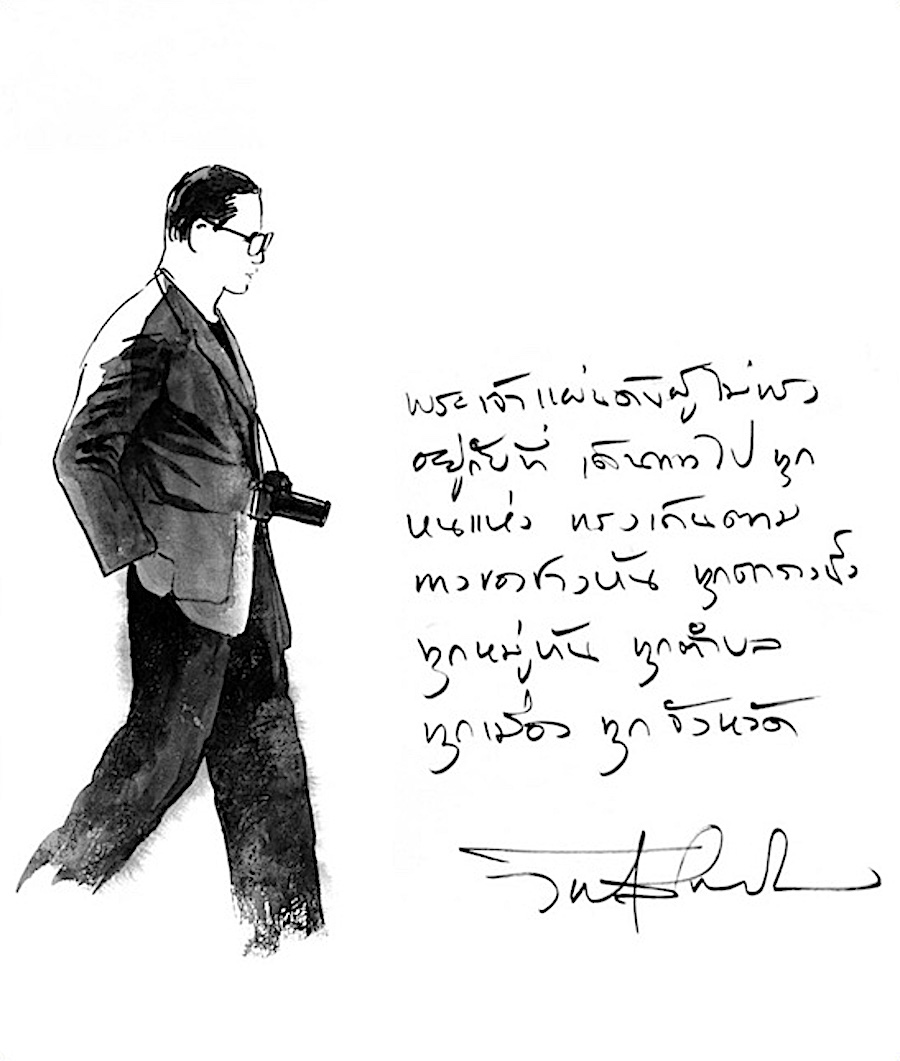 พระเจ้าแผ่นดินผู้ไม่ทรง
อยู่กับที่ เดินทางไป ทุก
หนแห่ง ทรงเดินตาม
ทางของชาวบ้าน ทุกตารางนิ้ว
ทุกหมู่บ้าน ทุกตำบล
ทุกเมือง ทุก จังหวัด